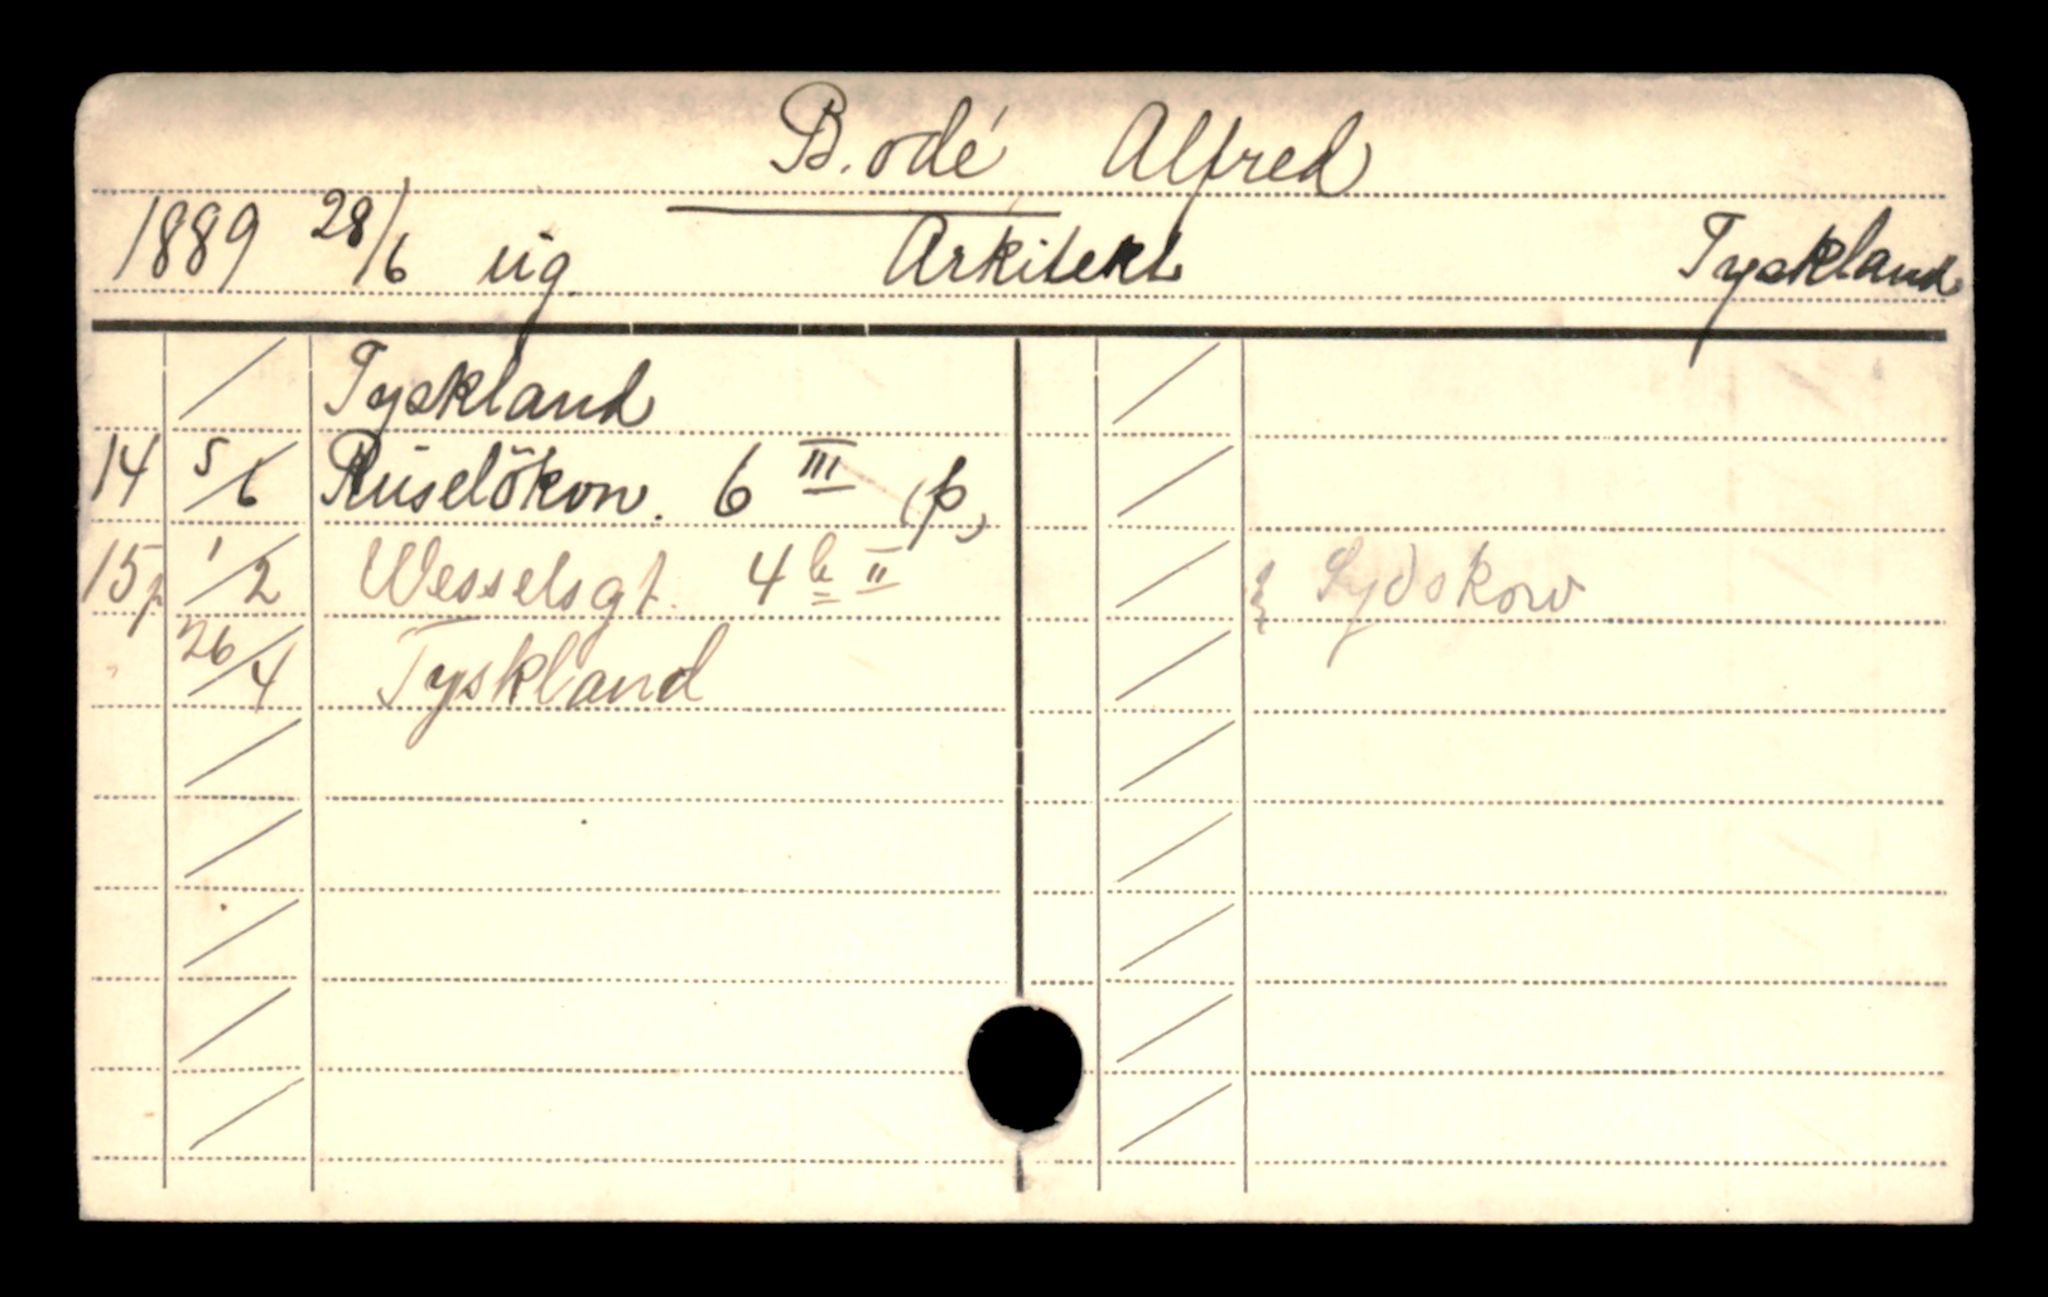 B.odé Alfred
1889 28/6 ug. Arkitekt Tyskland
Tyskland
14 5/6 Ruselökvn. 6 III (p)
15 1/2 Wesselsgt. 4 b II
" 26/4 Tyskland